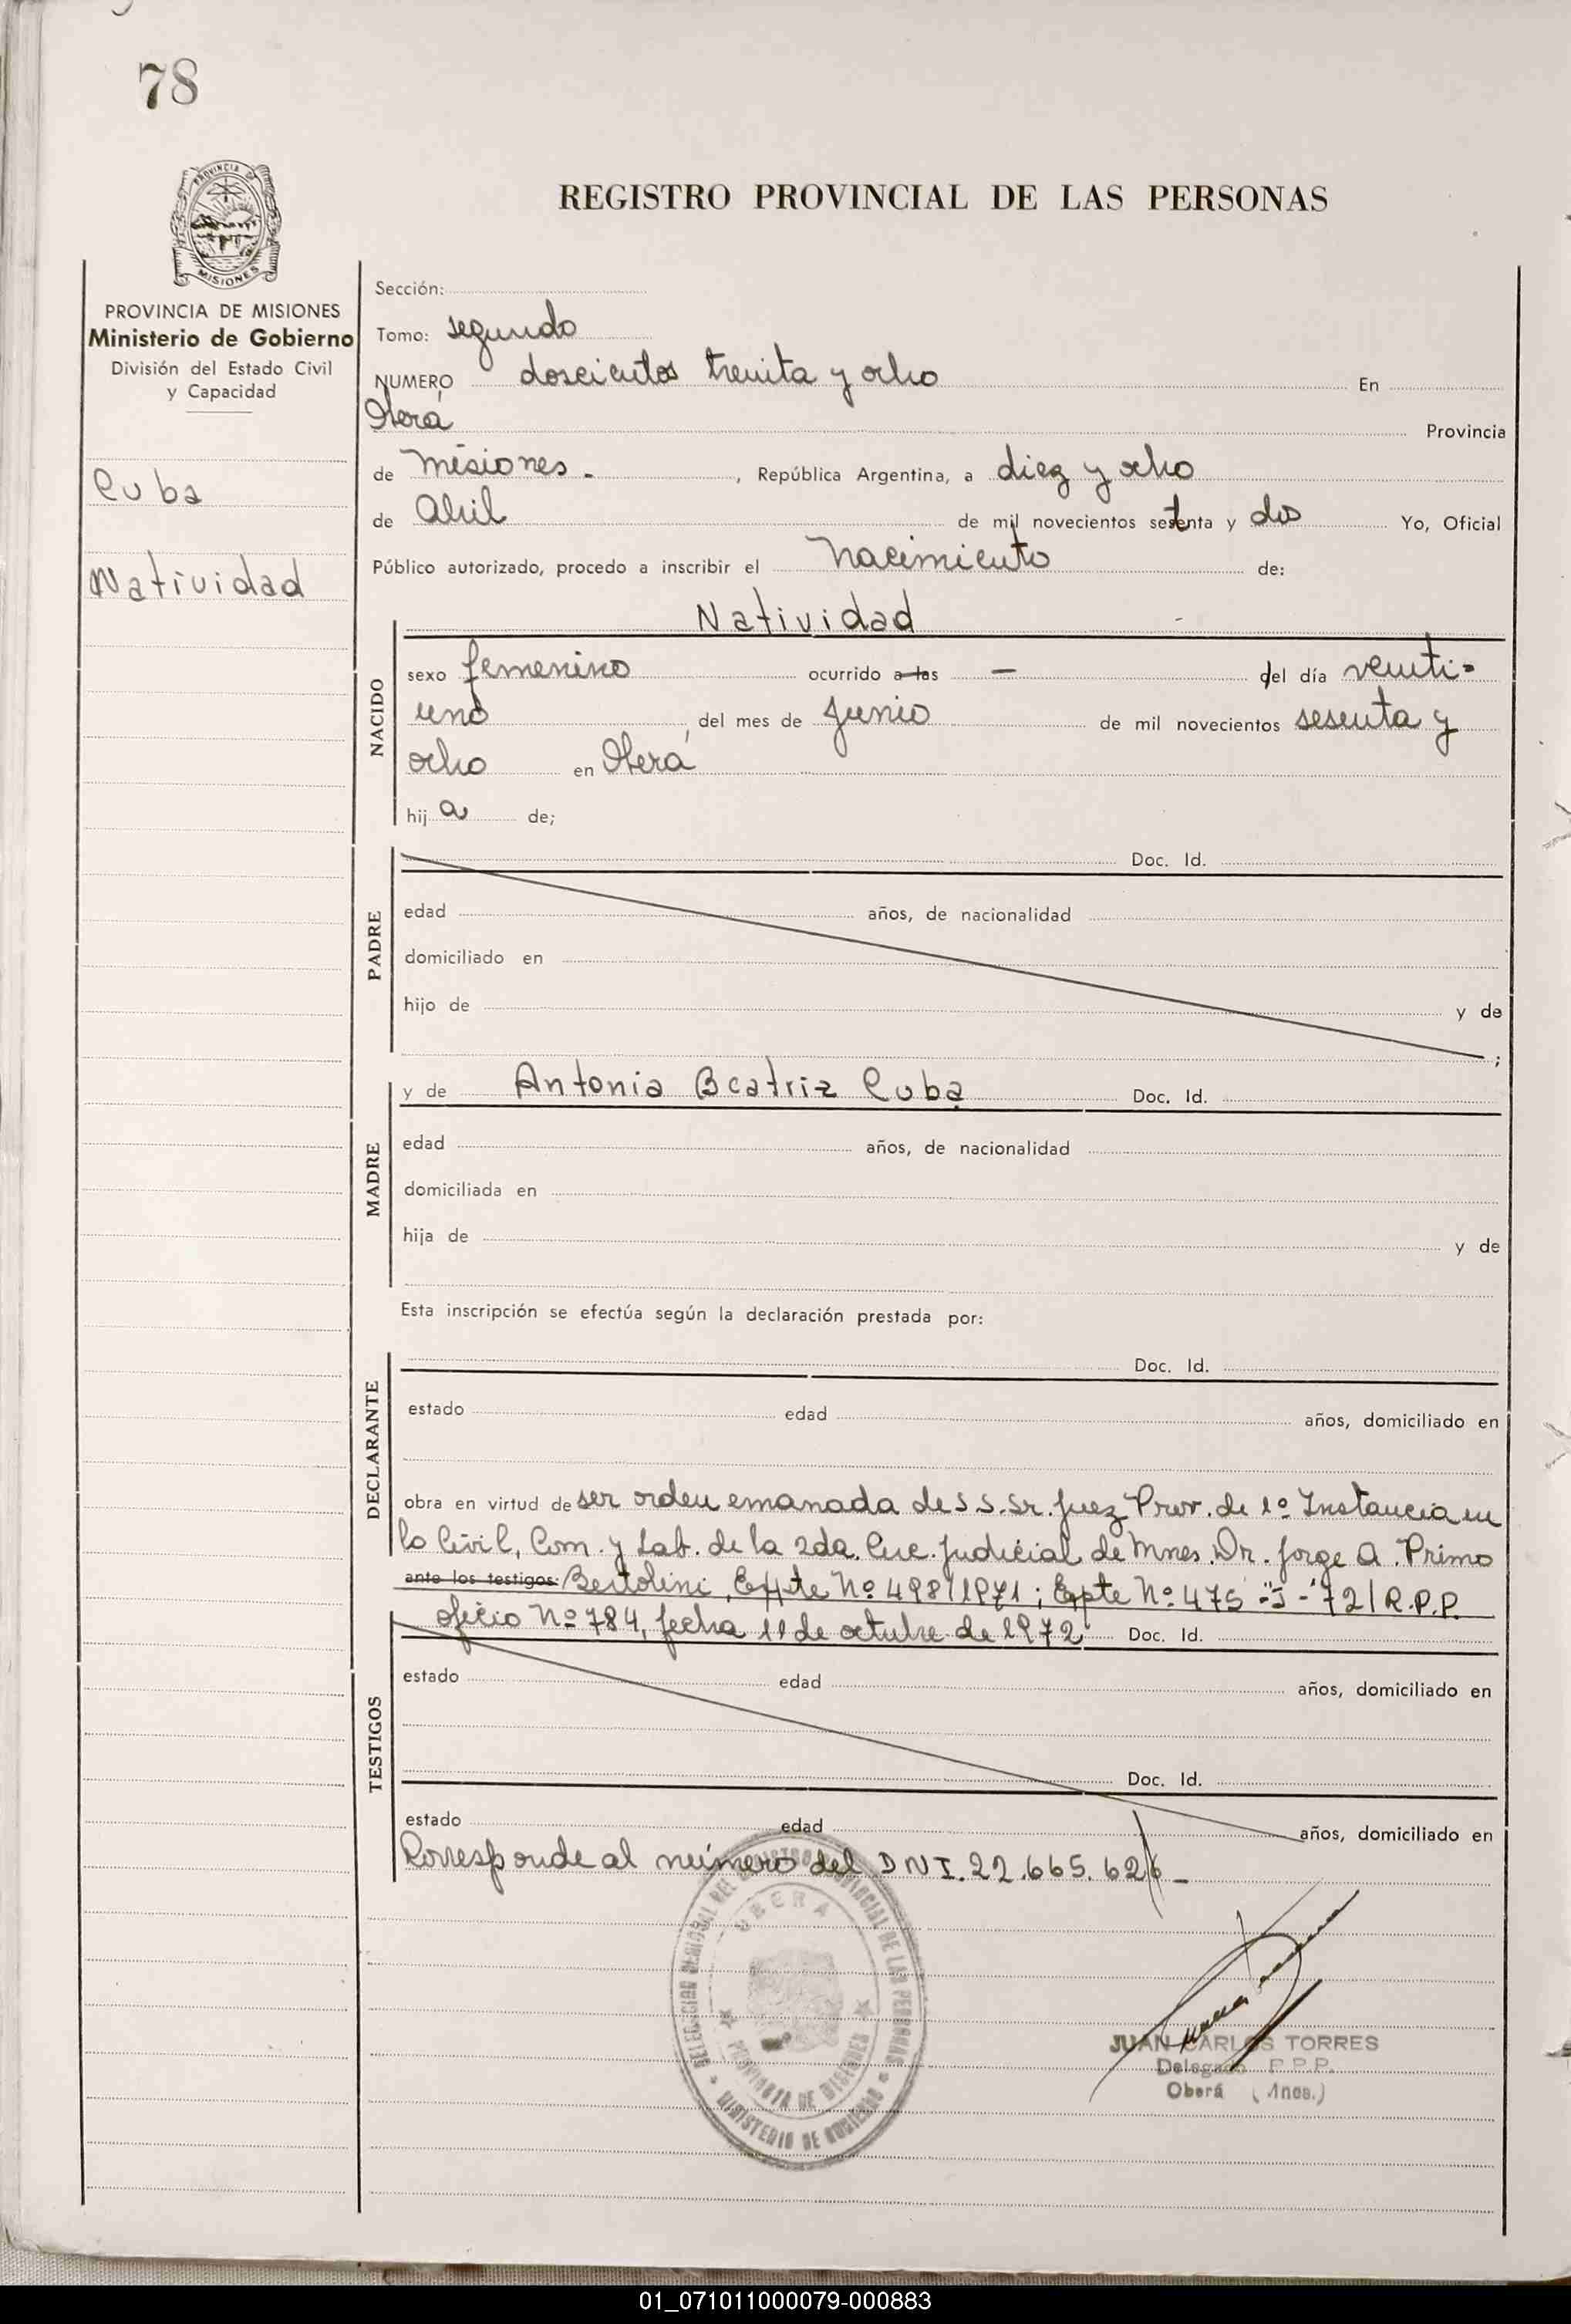 78
PROVINCIA DE MISIONES
REGISTRO PROVINCIAL DE LAS PERSONAS
PROVINCIA DE MISIONES
Ministerio de Gobierno
División del Estado Civil
y Capacidad
Cuba
Natividad
Sección:
Tomo: segundo
NUMERO doscientos treinta y ocho En
Oberá Provincia
de Misiones - , República Argentina, a diez y ocho
de Abril de mil novecientos setenta y dos Yo, Oficial
Público autorizado, procedo a inscribir el nacimiento de:
Natividad -
NACIDO
sexo femenino ocurrido a las — del día veinti-
uno del mes de Junio de mil novecientos sesenta y
ocho en Oberá
hij a de;
PADRE
Doc. Id.
edad años, de nacionalidad
domiciliado en
hijo de y de
;
MADRE
y de Antonia Beatriz Cuba Doc. Id.
edad años, de nacionalidad
domiciliada en
hija de y de
Esta inscripción se efectúa según la declaración prestada por:
DECLARANTE
Doc. Id.
estado edad años, domiciliado en
obra en virtud de ser orden emanada de S.S. Sr. Juez Prov. de 1º Instancia en
lo Civil, Com. y Lab. de la 2da. Circ. Judicial de Mnes. Dr. Jorge A. Primo
ante los testigos: Bertolini, Expte Nº 498/1971; Expte Nº 475 -"J"- 72/R.P.P.
oficio Nº 784, fecha 11 de octubre de 1972 Doc. Id.
TESTIGOS
estado edad años, domiciliado en
Doc. Id.
estado edad años, domiciliado en
Corresponde al número del DNI. 22.665.626 -
DELEGACION REGIONAL DEL REGISTRO PROVINCIAL DE LAS PERSONAS
OBERA
PROVINCIA DE MISIONES
MINISTERIO DE GOBIERNO
JUAN CARLOS TORRES
Delegado R.P.P.
Oberá (Mnes.)
01_071011000079-000883